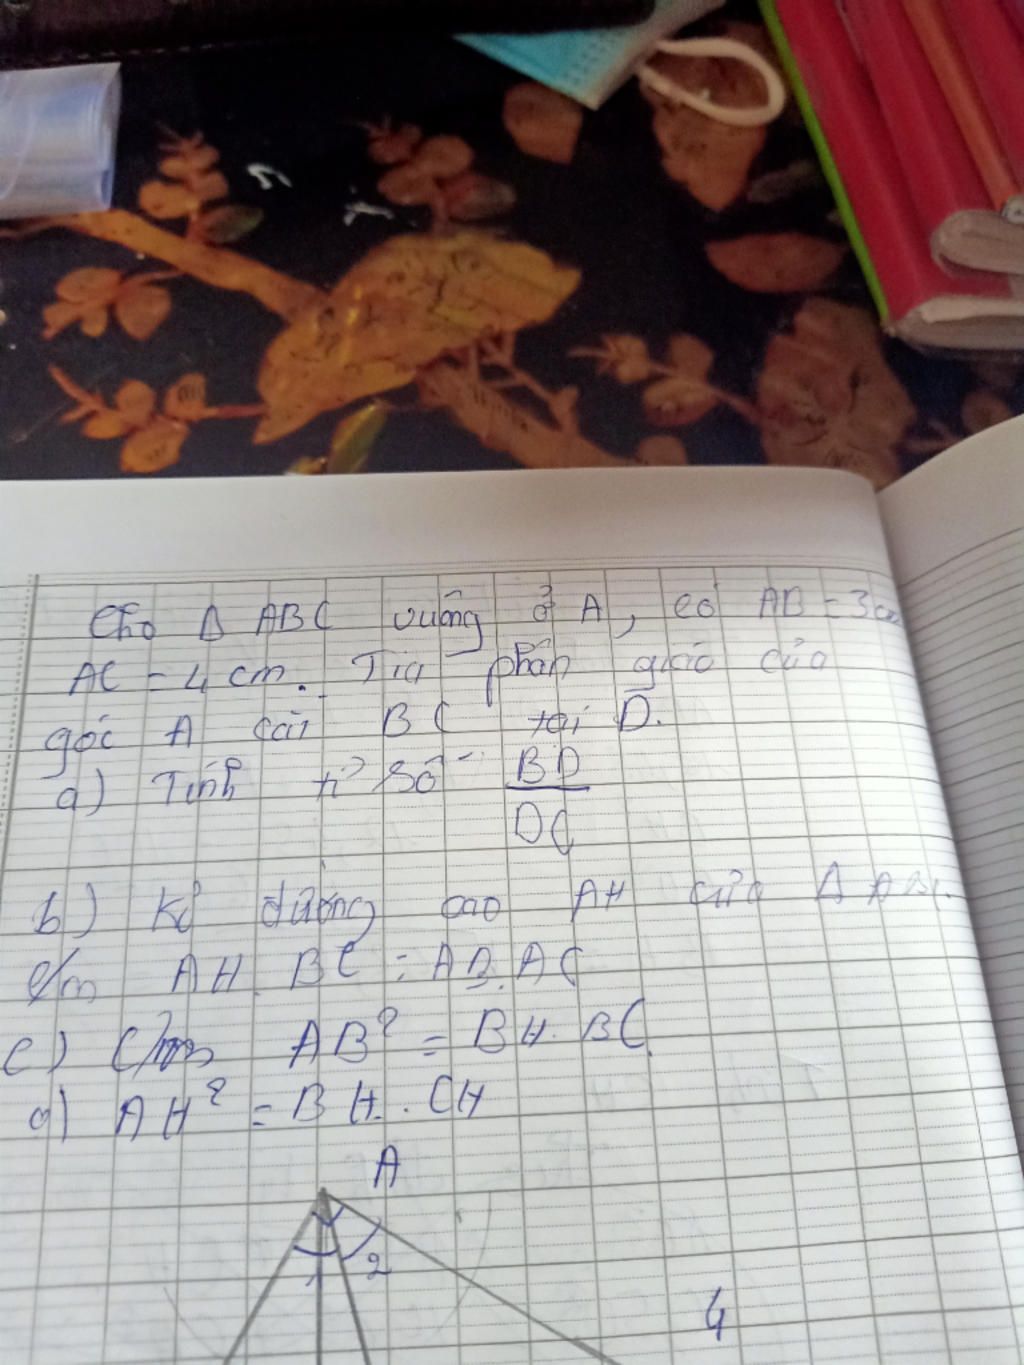 Cho Δ ABC vuông ở A, có AB = 3cm
AC = 4 cm. Tia phân giác của
góc A cắt BC tại D.
a) Tính tỉ số BD/DC
b) Kẻ đường cao AH của Δ ABC.
c/m AH. BC = AB. AC
c) C/m AB² = BH. BC.
d) AH² = BH. CH
A
1 2
4